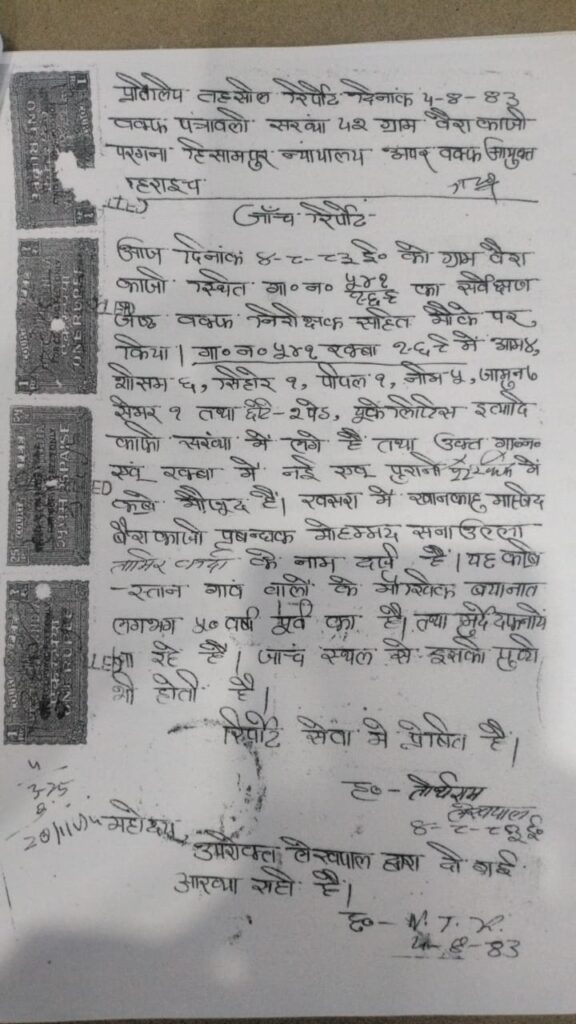 प्रतिलिपि तहसील रिपोर्ट दिनांक 5-8-83
वक्फ पत्रावली संख्या ५२ ग्राम बैरा काजी
परगना हिसामपुर न्यायालय अपर वक्फ आयुक्त
बहराइच
जाँच रिपोर्ट
आज दिनांक ४-८-८३ ई० को ग्राम बैरा
काजी स्थित गा० न० ५४१ का सर्वेक्षण
वक्फ निरीक्षक सहित मौके पर
किया। गा० न० ५४१ रकबा २-६ में आम ४,
शीसम ६, सिहोर १, पीपल १, नीम ५, जामुन ७
सेमर १ तथा छोटे-२ पेड़, यूकेलिप्टिस इत्यादि
काफी संख्या में लगे है तथा उक्त गा० न०
एवं रकबा में नई एवं पुरानी में
कब्रे मौजूद है। खसरा में खानकाह मस्जिद
बैरा काजी प्रबन्धक मोहम्मद सनाउल्ला
के नाम दर्ज है। यह कब्रि
-स्तान गांव वालों के मौखिक बयानात
लगभग ५० वर्ष पूर्व का है। तथा मुर्दे दफनायें
जा रहे है। जाचं स्थल से इसकी पुष्टि
भी होती है।
रिपोर्ट सेवा मे प्रेषित है।
ह०- तीर्थराम
लेखपाल
४-८-८३ ई०
महोदय,
उपरोक्त लेखपाल द्वारा दी गई
आख्या सही है।
ह०-
5-8-83
ONE RUPEE